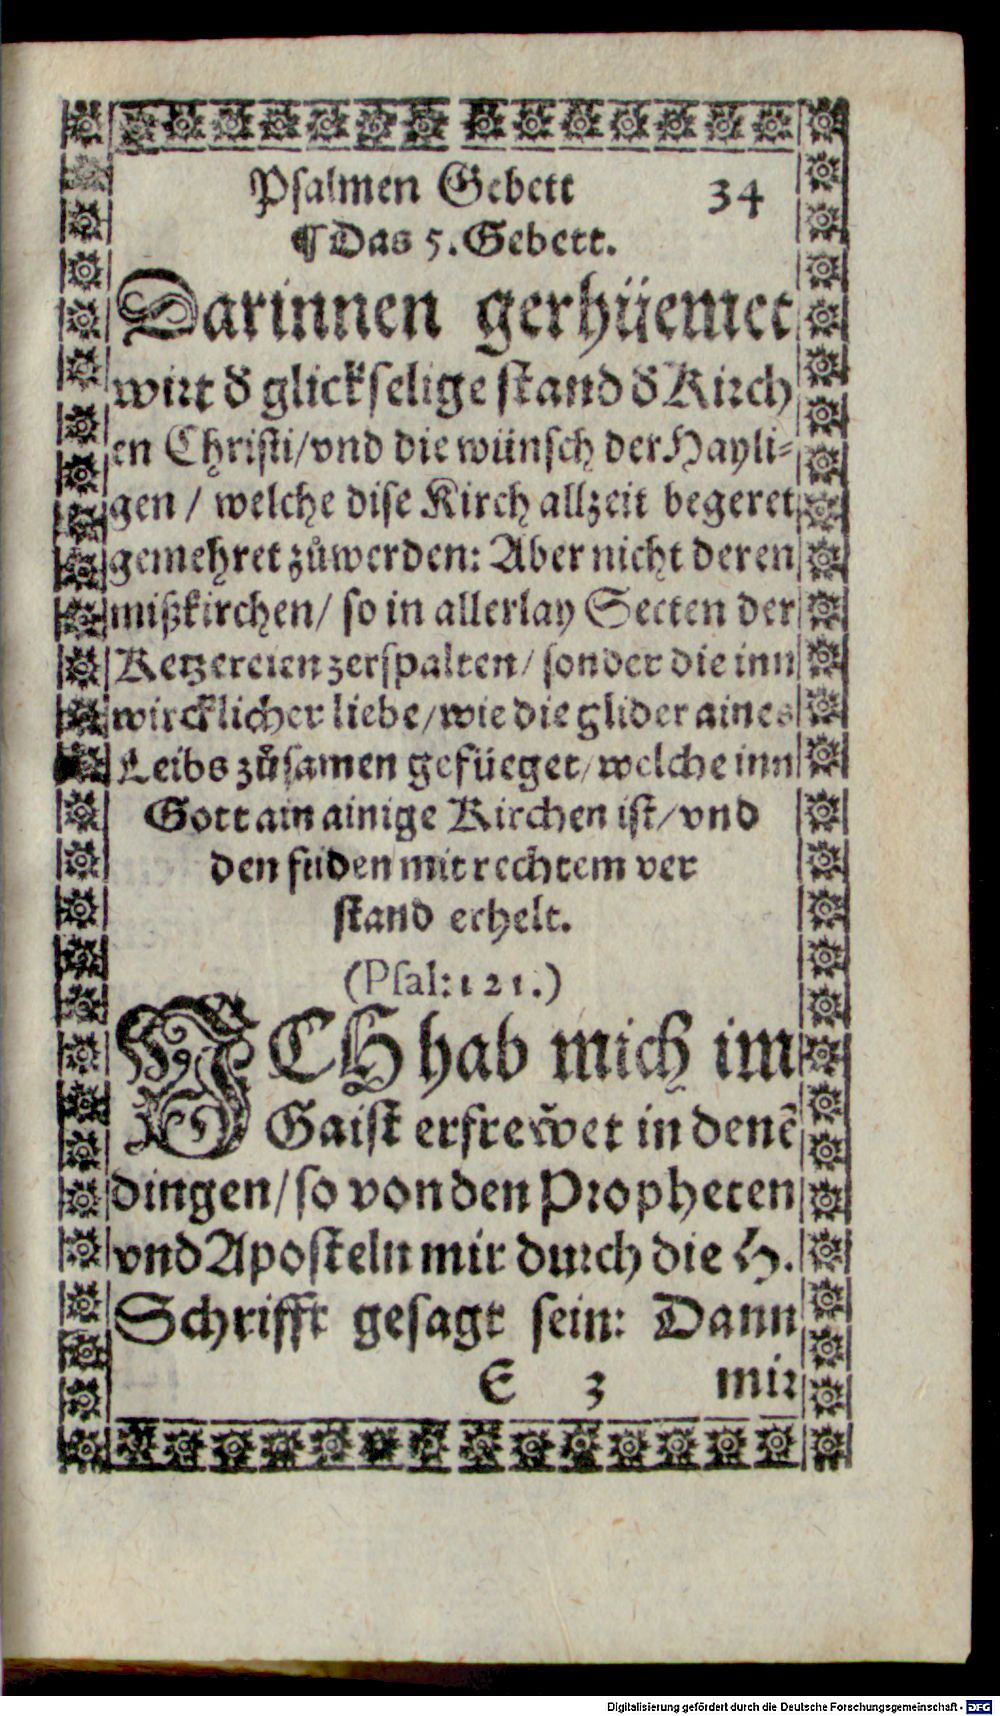 Psalmen Gebett 34
¶ Das 5. Gebett.
Darinnen gerhüemet
wirt d̕ glickselige stand d̕ Kirch
en Christi/vnd die wünsch der Hayli⸗
gen / welche dise Kirch allzeit begeret
gemehret zůwerden: Aber nicht deren
mißkirchen/ so in allerlay Secten der
Ketzereien zerspalten/ sonder die inn
wircklicher liebe/wie die glider aines
Leibs zůsamen gefüeget/welche inn
Gott ain ainige Kirchen ist/vnd
den friden mit rechtem ver
stand erhelt.
(Psal: 121.)
ICH hab mich im
Gaist erfrewͤet in denē
dingen/so von den Propheten
vnd Aposteln mir durch die H.
Schrifft gesagt sein: Dann
E 3 mir
Digitalisierung gefördert durch die Deutsche Forschungsgemeinschaft - DFG